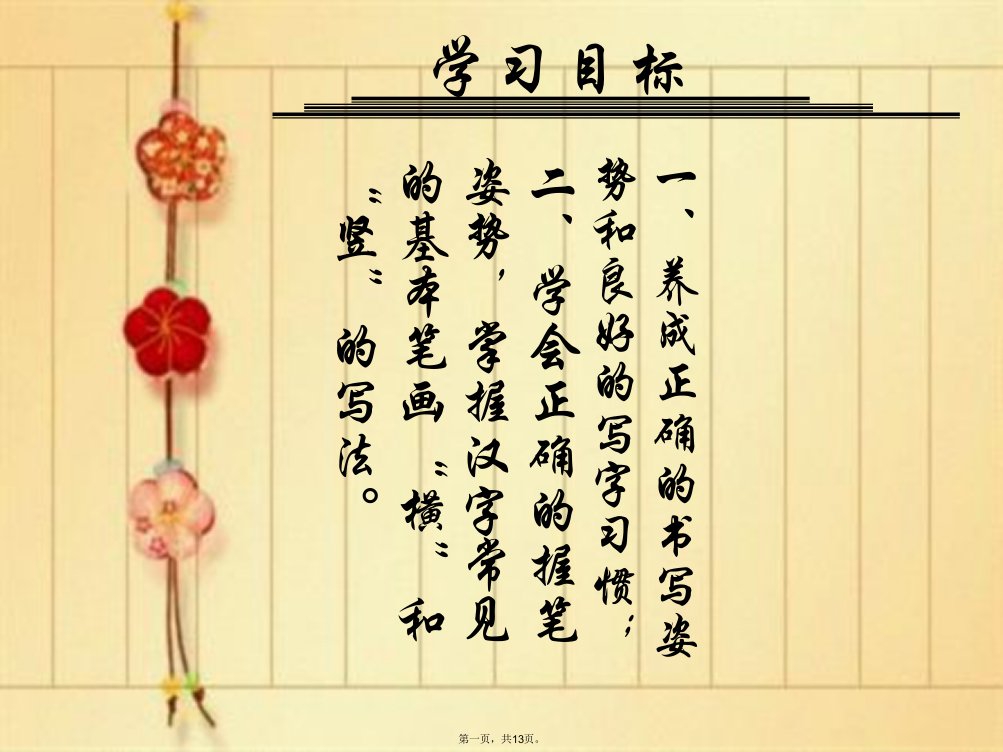 学习目标
一、养成正确的书写姿
势和良好的写字习惯；
二、学会正确的握笔
姿势，掌握汉字常见
的基本笔画“横”和
“竖”的写法。
第一页，共13页。